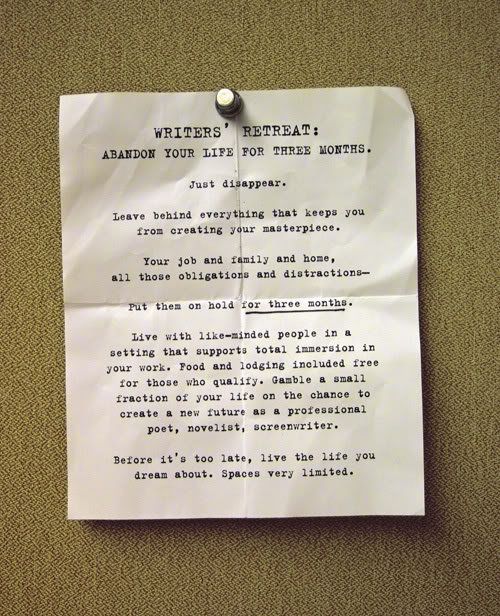 WRITERS' RETREAT:
ABANDON YOUR LIFE FOR THREE MONTHS.
Just disappear.
Leave behind everything that keeps you
from creating your masterpiece.
Your job and family and home,
all those obligations and distractions—
Put them on hold for three months.
Live with like-minded people in a
setting that supports total immersion in
your work. Food and lodging included free
for those who qualify. Gamble a small
fraction of your life on the chance to
create a new future as a professional
poet, novelist, screenwriter.
Before it's too late, live the life you
dream about. Spaces very limited.